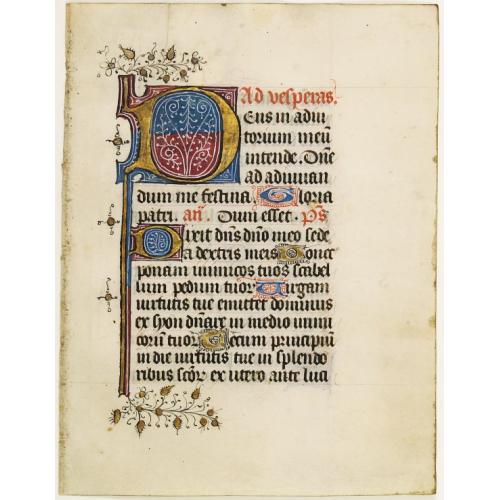 Ad vesperas.
Deus in adiu
torium meū
intende. Dn̄e
ad adiuuan
dum me festina Gloria
patri. an̄. Dum esset. p̄s
Dixit dn̄s dn̄o meo sede
a dextris meis Donec
ponam inimicos tuos scabel
lum pedum tuor Uirgam
uirtutis tue emittet dominus
ex syon dn̄are in medio inimi
corū tuor Tecum principiū
in die uirtutis tue in splendo
ribus sc̄or ex utero ante luci